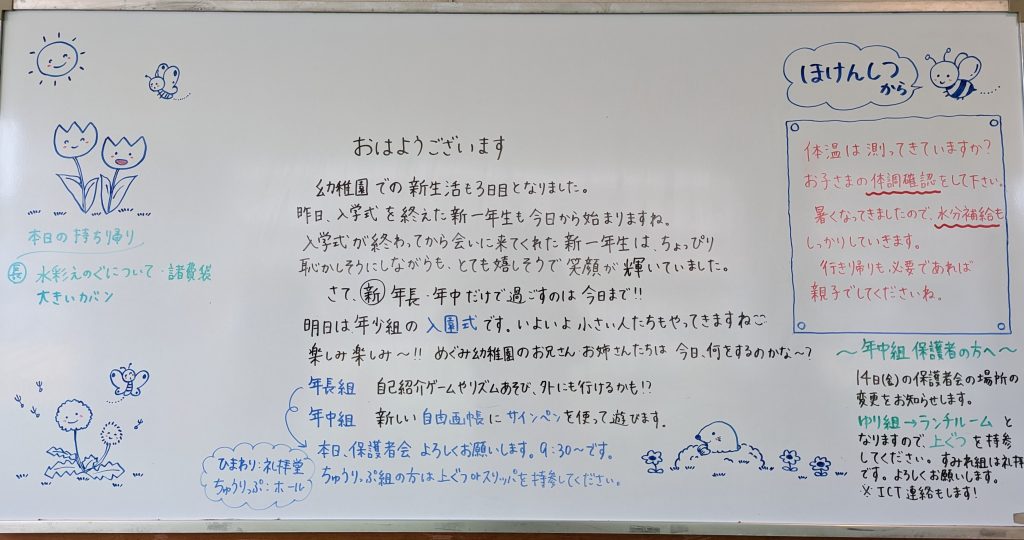 おはようございます
幼稚園での新生活も3日目となりました。
昨日、入学式を終えた新一年生も今日から始まりますね。
入学式が終わってから会いに来てくれた新一年生は、ちょっぴり
恥かしそうにしながらも、とても嬉しそうで笑顔が輝いていました。
さて、新年長・年中だけで過ごすのは今日まで!!
明日は年少組の入園式です。いよいよ小さい人たちもやってきますね
楽しみ楽しみ〜!! めぐみ幼稚園のお兄さんお姉さんたちは今日、何をするのかな〜?
年長組 自己紹介ゲームやリズムあそび、外にも行けるかも!?
年中組 新しい自由画帳にサインペンを使って遊びます。
本日、保護者会よろしくお願いします。9:30〜です。
ちゅうりっぷ組の方は上ぐつorスリッパを持参してください。
ひまわり:礼拝堂
ちゅうりっぷ:ホール
本日の持ち帰り
長 水彩えのぐについて・諸費袋
大きいカバン
ほけんしつ
から
体温は測ってきていますか?
お子さまの体調確認をして下さい。
暑くなってきましたので、水分補給も
しっかりしていきます。
行き帰りも必要であれば
親子でしてくださいね。
〜年中組 保護者の方へ〜
14日(金)の保護者会の場所の
変更をお知らせします。
ゆり組→ランチルームと
なりますので、上ぐつを持参
してください。すみれ組は礼拝
です。よろしくお願いします。
※ICT連絡もします!